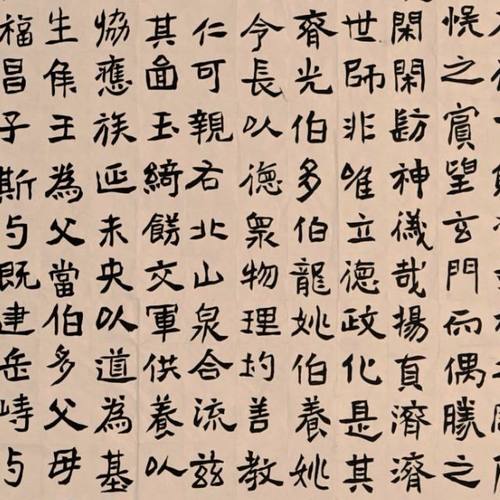 恍之賓望玄門而偶勝之
閑閑神儀哉揚真濟濟
世師非唯立德政化是其
齊光伯多伯龍姚伯養姚
令長以德眾物理均善教
仁可親右北山泉合流茲
其面玉綺餝交軍供養以
協應族延未央以道為基
生侯王為父當伯多父母
福昌子斯与既建岳峙与